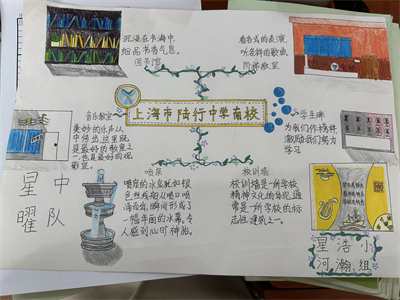 沉浸在书海中,
细品书香气息。
图书馆
看各式的表演,
听各样的歌曲,
阶梯教室
上海市陆行中学南校
音乐教室
美妙的乐声从
中传出,这里既
是最好的教室之
一,也是最好的观
影室。
学生碑
为我们作榜样,
激励我们努力
学习
喷泉
喷泉的水流就如银
色丝线般从喷口喷
涌而出,瞬间形成了
一幅壮丽的水幕。令
人感到心旷神怡。
校训墙
校训墙是一所学校
精神文化的体现,通
常是一所学校的标
志性建筑之一。
星中
曜队
星浩小
河瀚组